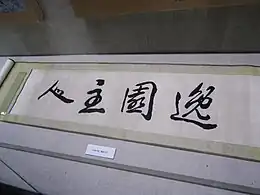 逸園主人